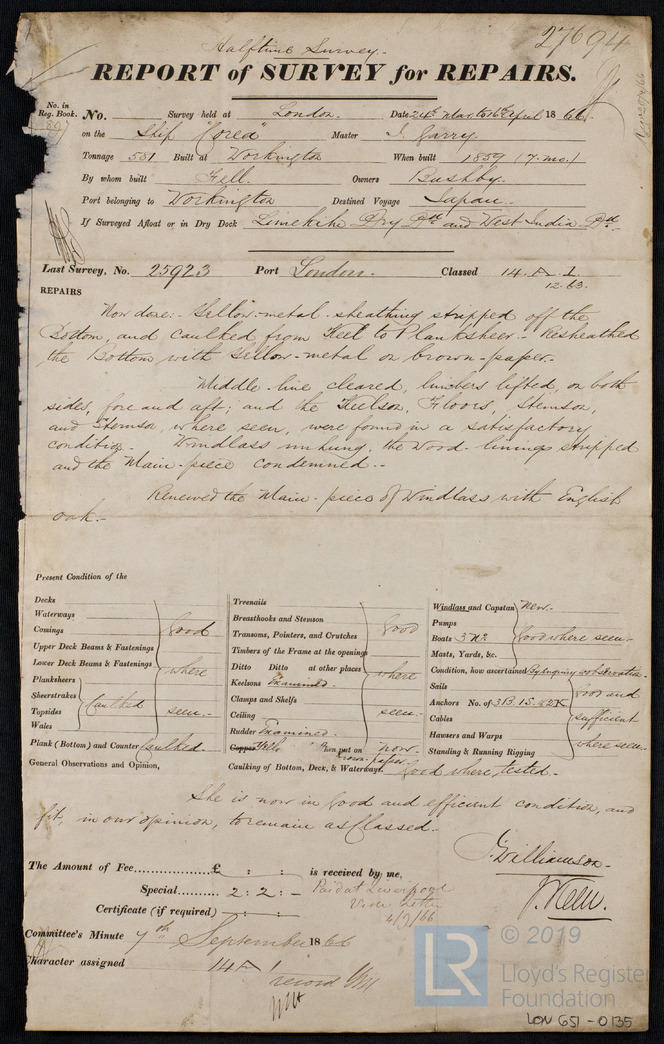 Halftime Survey.
27694
REPORT of SURVEY for REPAIRS.
No. in Reg. Book. No. Survey held at London. Date 24th Mar to 16th April 1866.
on the Ship "Corea" Master J. Garry.
Tonnage 551 Built at Workington When built 1859 (7 mo.)
By whom built Fell. Owners Bushby.
Port belonging to Workington Destined Voyage Japan.
If Surveyed Afloat or in Dry Dock Limekiln Dry Dk and West India Dk.
Last Survey, No. 25923 Port London. Classed 14 A 1.
12.63.
REPAIRS
Now done:- Yellow-metal sheathing stripped off the
Bottom, and caulked from Keel to Planksheer. Resheathed
the Bottom with Yellow-metal on brown-paper.
Middle-line cleared, limbers lifted, on both
sides, fore and aft; and the Keelson, Floors, Stemson,
and Sternson, where seen, were found in a satisfactory
condition. Windlass unhung, the wood-linings stripped
and the Main-piece condemned.
Renewed the Main-piece of Windlass with English
oak.
Present Condition of the
Decks
Waterways
Comings good
Upper Deck Beams & Fastenings
Lower Deck Beams & Fastenings where
Planksheers
Sheerstrakes caulked
Topsides seen.
Wales
Plank (Bottom) and Counter Caulked.
General Observations and Opinion,
Treenails
Breasthooks and Stemson
Transoms, Pointers, and Crutches good
Timbers of the Frame at the openings
Ditto Ditto at other places where
Keelsons Examined.
Clamps and Shelfs
Ceiling seen.
Rudder Examined.
Copper when put on now.
brown-paper
Caulking of Bottom, Deck, & Waterways. Good where tested.
Windlass and Capstan New.
Pumps
Boats 3 No. Good where seen.
Masts, Yards, &c.
Condition, how ascertained By enquiry & observation.
Sails good and
Anchors No. of 3B. 1S. & 2K
Cables sufficient
Hawsers and Warps
Standing & Running Rigging where seen.
She is now in good and efficient condition, and
fit, in our opinion, to remain as Classed.
J. Williamson.
The Amount of Fee £ : : is received by me,
Special 2 : 2 : - Paid at Liverpool
Vide letter
4/9/66
Certificate (if required) : :
Committee's Minute 7th September 1866
Character assigned 14 A 1
© 2019
LR Lloyd's Register
Foundation
LON 651-0135